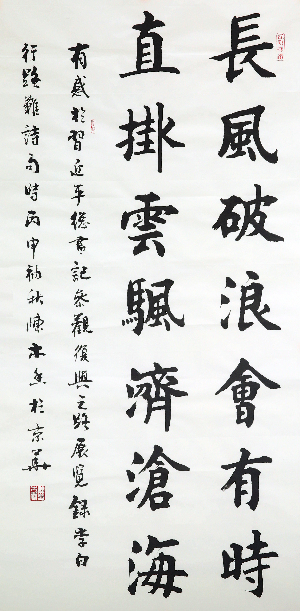 長風破浪會有時
直掛雲颿濟滄海
有感於習近平總書記參觀復興之路展覽錄李白
行路難詩句時丙申初秋陳於京華